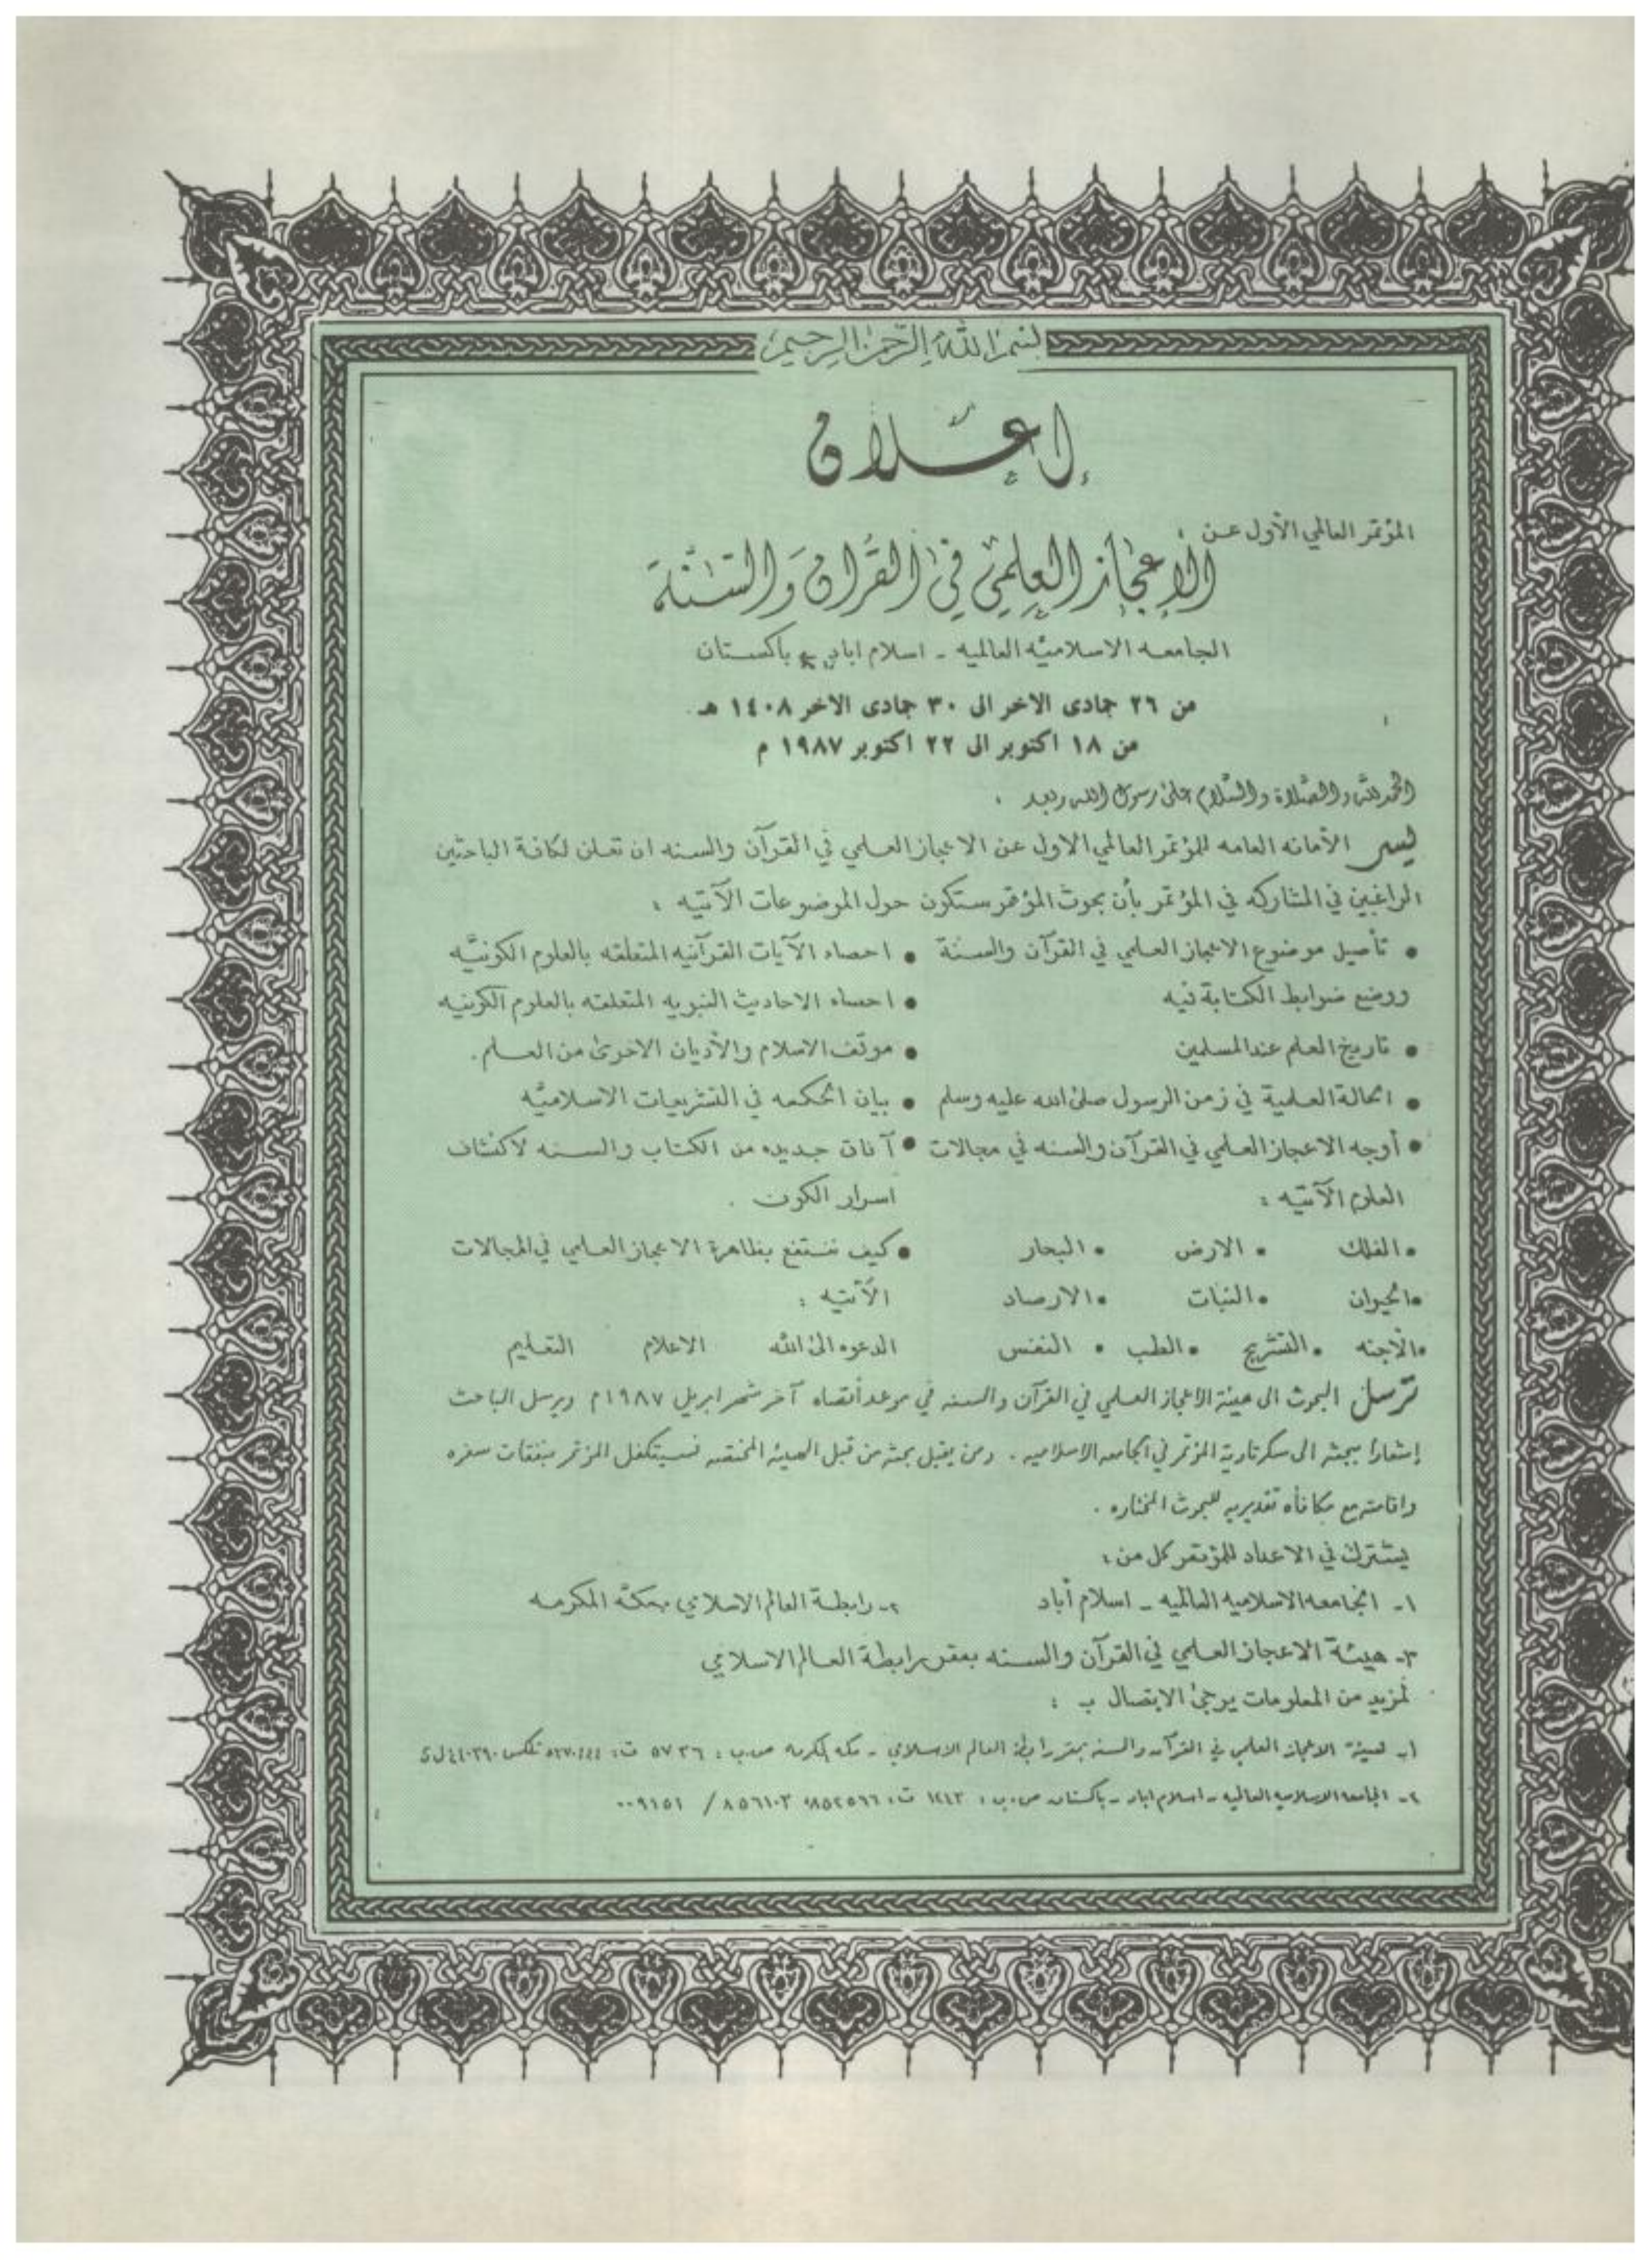 بسم الله الرحمن الرحيم
إعلان
المؤتمر العالمي الأول عن :
الإعجاز العلمي في القرآن والسنة
الجامعه الاسلاميه العالميه - اسلام اباد باكستان
من ٢٦ جمادى الاخر الى ٣٠ جمادى الاخر ١٤٠٨ هـ
من ١٨ اكتوبر الى ٢٢ اكتوبر ١٩٨٧ م
الحمد لله والصلاة والسلام على رسول الله وبعد ،
ليسر الأمانه العامه للمؤتمر العالمي الاول عن الاعجاز العلمي في القرآن والسنه ان تعلن لكافة الباحثين
الراغبين في المشاركه في المؤتمر بأن بحوث المؤتمر ستكون حول الموضوعات الآتيه :
• تأصيل موضوع الاعجاز العلمي في القرآن والسنة
ووضع ضوابط الكتابة فيه
• تاريخ العلم عند المسلمين
• الحالة العلمية في زمن الرسول صلى الله عليه وسلم
• أوجه الاعجاز العلمي في القرآن والسنه في مجالات
العلوم الآتيه :
• الفلك • الارض • البحار
• الحيوان • النبات • الارصاد
• الأجنه • التشريح • الطب • النفس
• احصاء الآيات القرآنيه المتعلقه بالعلوم الكونيه
• احصاء الاحاديث النبويه المتعلقه بالعلوم الكونيه
• موقف الاسلام والأديان الاخرى من العلم .
• بيان الحكمه في التشريعات الاسلاميه
• آفاق جديده من الكتاب والسنه لاكتشاف
اسرار الكون .
• كيف ننتفع بظاهرة الاعجاز العلمي في المجالات
الآتيه :
الدعوه الى الله الاعلام التعليم
ترسل البحوث الى هيئة الاعجاز العلمي في القرآن والسنه في موعد أقصاه آخر شهر ابريل ١٩٨٧م ويرسل الباحث
إشعارا ببحثه الى سكرتارية المؤتمر في الجامعه الاسلاميه . ومن يقبل بحثه من قبل الهيئه المختصه فسيتكفل المؤتمر بنفقات سفره
واقامته مع مكافأه تقديريه للبحوث المختاره .
يشترك في الاعداد للمؤتمر كل من :
١- الجامعه الاسلاميه العالميه - اسلام أباد ٢- رابطة العالم الاسلامي بمكة المكرمه
٣- هيئة الاعجاز العلمي في القرآن والسنه بمقر رابطة العالم الاسلامي
لمزيد من المعلومات يرجى الاتصال ب :
١- هيئة الاعجاز العلمي في القرآن والسنه بمقر رابطة العالم الاسلامي - مكه المكرمه ص.ب : ٥٧٣٦ ت : تلكس
٢- الجامعه الاسلاميه العالميه - اسلام اباد - باكستان ص.ب : ١٢٤٣ ت : ٨٥٢٥٦٦ ٨٥٦١٠٣ / ٠٠٩٢٥١